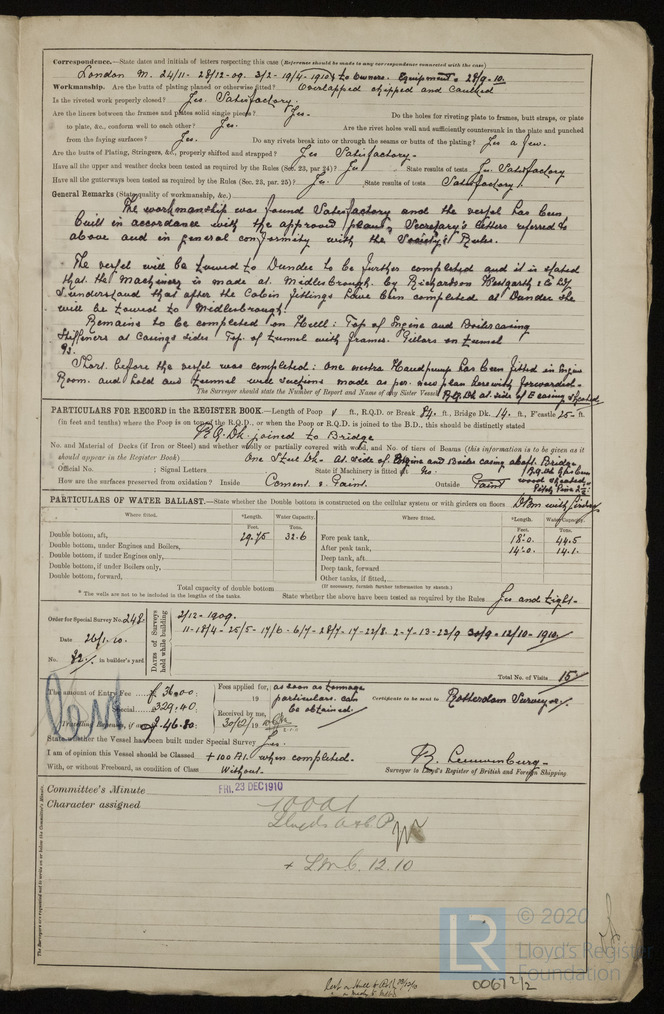 Correspondence.—State dates and initials of letters respecting this case (Reference should be made to any correspondence connected with the case)
London M. 24/11 - 28/12-09. 3/2 - 19/4-1910 & to Owners. Equipment 28/9-10.
Workmanship. Are the butts of plating planed or otherwise fitted? Overlapped chipped and caulked
Is the riveted work properly closed? Yes. Satisfactory.
Are the liners between the frames and plates solid single pieces? Yes. Do the holes for riveting plate to frames, butt straps, or plate
to plate, &c., conform well to each other? Yes. Are the rivet holes well and sufficiently countersunk in the plate and punched
from the faying surfaces? Yes. Do any rivets break into or through the seams or butts of the plating? Yes a few.
Are the butts of Plating, Stringers, &c., properly shifted and strapped? Yes Satisfactory.
Have all the upper and weather decks been tested as required by the Rules (Sec. 23, par 24)? Yes State results of tests Yes Satisfactory
Have all the gutterways been tested as required by the Rules (Sec. 23, par. 25)? Yes. State results of tests Satisfactory.
General Remarks (State quality of workmanship, &c.)
The workmanship was found Satisfactory and the vessel has been
built in accordance with the approved plans, Secretary's letters referred to
above and in general conformity with the Society's Rules.
The vessel will be towed to Dundee to be further completed and it is stated
that the Machinery is made at Middlesbrough by Richardson Westgarth & Co Ld
I understand that after the Cabin fittings have been completed at Dundee she
will be towed to Middlesbrough.
Remains to be completed on Hull: Top of Engine and Boiler casing
Stiffeners at Casings sides Top of tunnel with frames. Pillars on tunnel
Short before the vessel was completed: One extra Handpump has been fitted in Engine
Room. and hold and tunnel well suctions made as per. new plan herewith forwarded.
The Surveyor should state the Number of Report and Name of any Sister Vessel R.Q.Dk at. side of E casing sheated
PARTICULARS FOR RECORD in the REGISTER BOOK.—Length of Poop ft., R.Q.D. or Break 84. ft., Bridge Dk. 14. ft., F'castle 25 ft.
(in feet and tenths) where the Poop is on top of the R.Q.D., or when the Poop or R.Q.D. is joined to the B.D., this should be distinctly stated
R.Q.Dk. joined to Bridge
No. and Material of Decks (if Iron or Steel) and whether wholly or partially covered with wood, and No. of tiers of Beams (this information is to be given as it
should appear in the Register Book) One Steel Dk. At side of Engine and Boiler casing abaft. Bridge
Official No. ; Signal Letters State if Machinery is fitted aft No. R.Q.Dk has been
How are the surfaces preserved from oxidation? Inside Cement & Paint. Outside Paint wood sheated.
Pitch Pine 2½"
PARTICULARS OF WATER BALLAST.—State whether the Double bottom is constructed on the cellular system or with girders on floors D.Btm. with Girders
Where fitted. *Length. Water Capacity. Where fitted. *Length. Water Capacity.
Feet. Tons. Feet. Tons.
Double bottom, aft, 29.75 32.6 Fore peak tank, 18.0 44.5
Double bottom, under Engines and Boilers, After peak tank, 14.0 14.1
Double bottom, if under Engines only, Deep tank, aft
Double bottom, if under Boilers only, Deep tank, forward
Double bottom, forward, Other tanks, if fitted,
Total capacity of double bottom (If necessary, furnish further information by sketch.)
* The wells are not to be included in the lengths of the tanks. State whether the above have been tested as required by the Rules Yes and tight.
Order for Special Survey No. 248
Date 26/1.10.
No. 82. in builder's yard
Dates of Surveys held while building
2/12-1909.
11-18/4 - 25/5 - 17/6 - 6/7 - 28/7 - 17-22/8. 2-7-13-23/9 30/9-12/10-1910
Total No. of Visits 15
The amount of Entry Fee £ 36.00
Special 329.40
Travelling Expenses, if any £ 46.80
Fees applied for, as soon as tonnage particulars can be obtained.
Received by me, 30/12/10
Certificate to be sent to Rotterdam Surveyors.
State whether the Vessel has been built under Special Survey Yes.
I am of opinion this Vessel should be Classed + 100 A1. when completed.
With, or without Freeboard, as condition of Class Without.
R. Leeuwenburg.
Surveyor to Lloyd's Register of British and Foreign Shipping.
Committee's Minute FRI. 23 DEC 1910
Character assigned 100A1
Lloyds A&C P
+ LMC. 12.10
The Surveyors are requested not to write on or below the Committee's Minute.
LR © 2020
Lloyd's Register
Foundation
00672 2/2